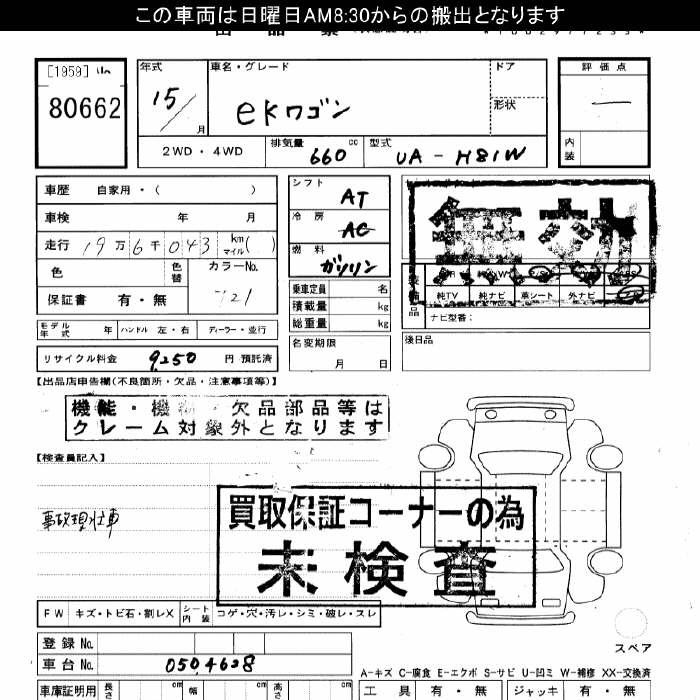 この車両は日曜日AM8:30からの搬出となります
出品票
[1959]
80662
年式 15 / 月
車名・グレード eKワゴン
ドア
形状
評価点 ―
内装
2WD・4WD
排気量 660 cc
型式 UA-H81W
車歴 自家用・( )
車検 年 月
走行 19万6千043 km マイル ( )
色 色替 カラーNo. 721
保証書 有・無
シフト AT
冷房 AC
燃料 ガソリン
乗車定員 名
積載量 kg
総重量 kg
無効
純TV 純ナビ 革シート 外ナビ
装備品
ナビ型番:
モデル年式 年 ハンドル 左・右 ディーラー・並行
名変期限 月 日
後日品
リサイクル料金 9,250 円 預託済
【出品店申告欄(不良箇所・欠品・注意事項等)】
機能・機 ・欠品部品等は
クレーム対象外となります
【検査員記入】
事故現状車
買取保証コーナーの為
未検査
FW キズ・トビ石・割レX シート内装 コゲ・穴・汚レ・シミ・破レ・スレ
登録 No.
車台 No. 0504628
スペア
A-キズ C-腐食 E-エクボ S-サビ U-凹ミ W-補修 XX-交換済
車庫証明用 長さ cm 幅 cm 高さ cm
工具 有・無 ジャッキ 有・無